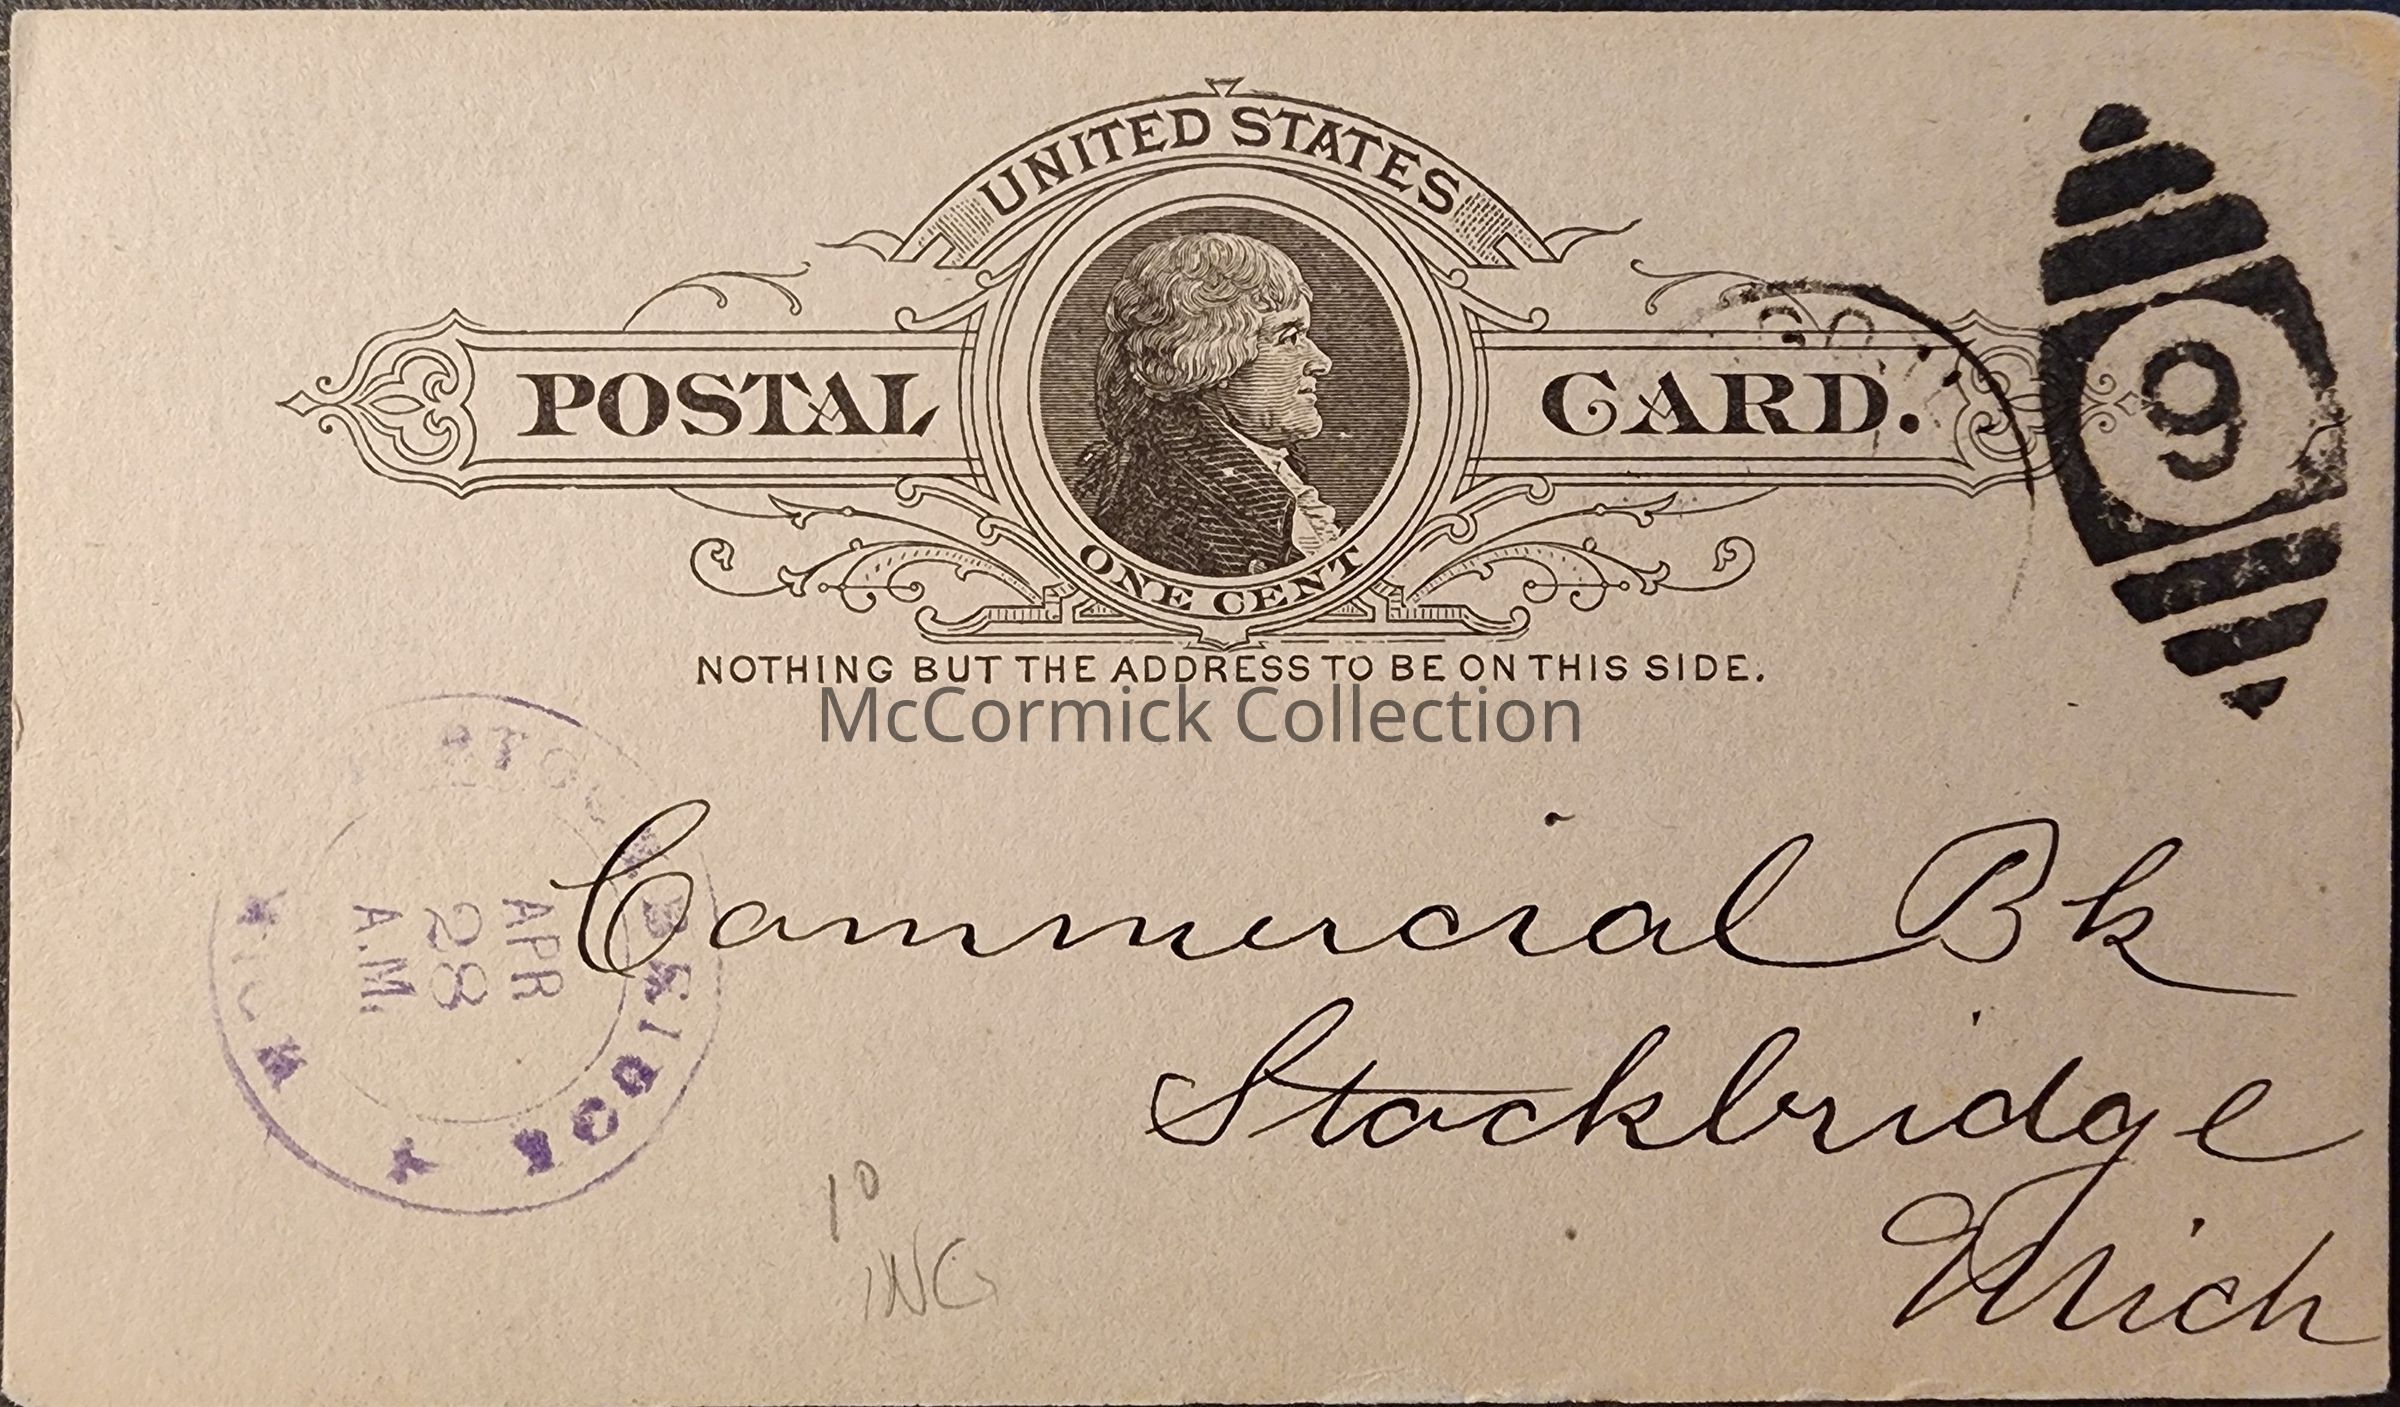 UNITED STATES
POSTAL CARD.
ONE CENT
NOTHING BUT THE ADDRESS TO BE ON THIS SIDE.
McCormick Collection
9
STOCKBRIDGE
APR
28
A.M.
MICH
Commercial Bk
Stockbridge
Mich
10